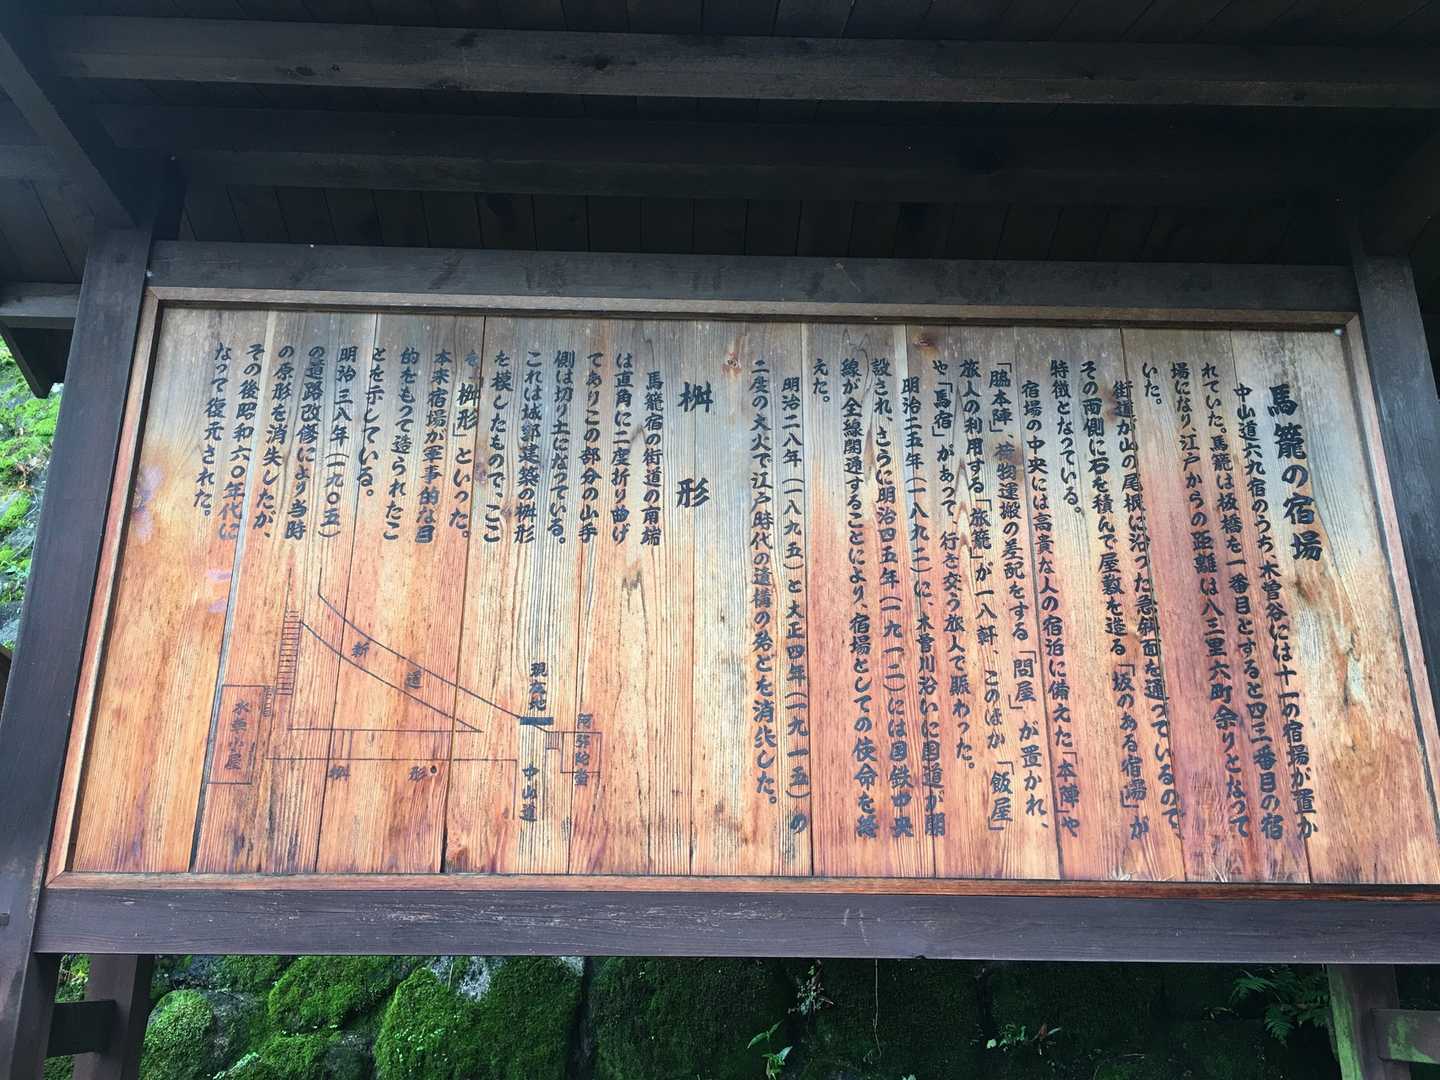 馬籠の宿場
中山道六九宿のうち、木曽谷には十一の宿場が置か
れていた。馬籠は板橋を一番目とすると四三番目の宿
場になり、江戸からの距離は八三里六町余りとなって
いた。
街道が山の尾根に沿った急斜面を通っているので、
その両側に石を積んで屋敷を造る「坂のある宿場」が
特徴となっている。
宿場の中央には高貴な人の宿泊に備えた「本陣」や
「脇本陣」、荷物運搬の差配をする「問屋」が置かれ、
旅人の利用する「旅籠」が一八軒、このほか「飯屋」
や「馬宿」があって、行き交う旅人で賑わった。
明治二五年(一八九二)に、木曽川沿いに国道が開
設され、さらに明治四五年(一九一二)には国鉄中央
線が全線開通することにより、宿場としての使命を終
えた。
明治二八年(一八九五)と大正四年(一九一五)の
二度の大火で江戸時代の遺構の殆どを消失した。
桝形
馬籠宿の街道の南端
は直角に二度折り曲げ
てありこの部分の山手
側は切り土になっている。
これは城郭建築の桝形
を模したもので、ここ
を「桝形」といった。
本来宿場が軍事的な目
的をもって造られたこ
とを示している。
明治三八年(一九〇五)
の道路改修により当時
の原形を消失したが、
その後昭和六〇年代に
なって復元された。
新道
現在地
阿弥陀堂
中山道
桝形
水車小屋